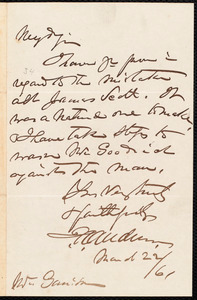 My dr Sir
I have yrs from in
regard to the mistake
abt James Scott. It
was a natural one to make,
& I have taken steps to
warn Mr Goodrich
against the man.
Yrs Very truly
& faithfully
March 22/61
Mr. Garrison